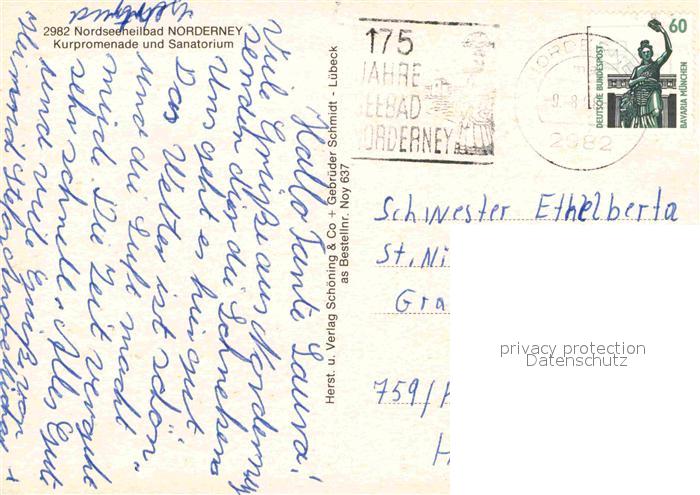 2982 Nordseeheilbad NORDERNEY
Kurpromenade und Sanatorium
Hallo Tante Laura!
Viele Grüße aus Norderney
senden dir die
Uns geht es hier gut.
Das Wetter ist schön
und die Luft macht
müde. Die Zeit vergeht
sehr schnell. Alles Gute
und viele Grüße von
Herst. u. Verlag Schöning & Co + Gebrüder Schmidt - Lübeck
as Bestellnr. Noy 637
175
JAHRE
SEEBAD
NORDERNEY
NORDERNEY
2982
60
DEUTSCHE BUNDESPOST
BAVARIA MÜNCHEN
Schwester Ethelberta
St. Ni
Gra
759/
H
privacy protection
Datenschutz